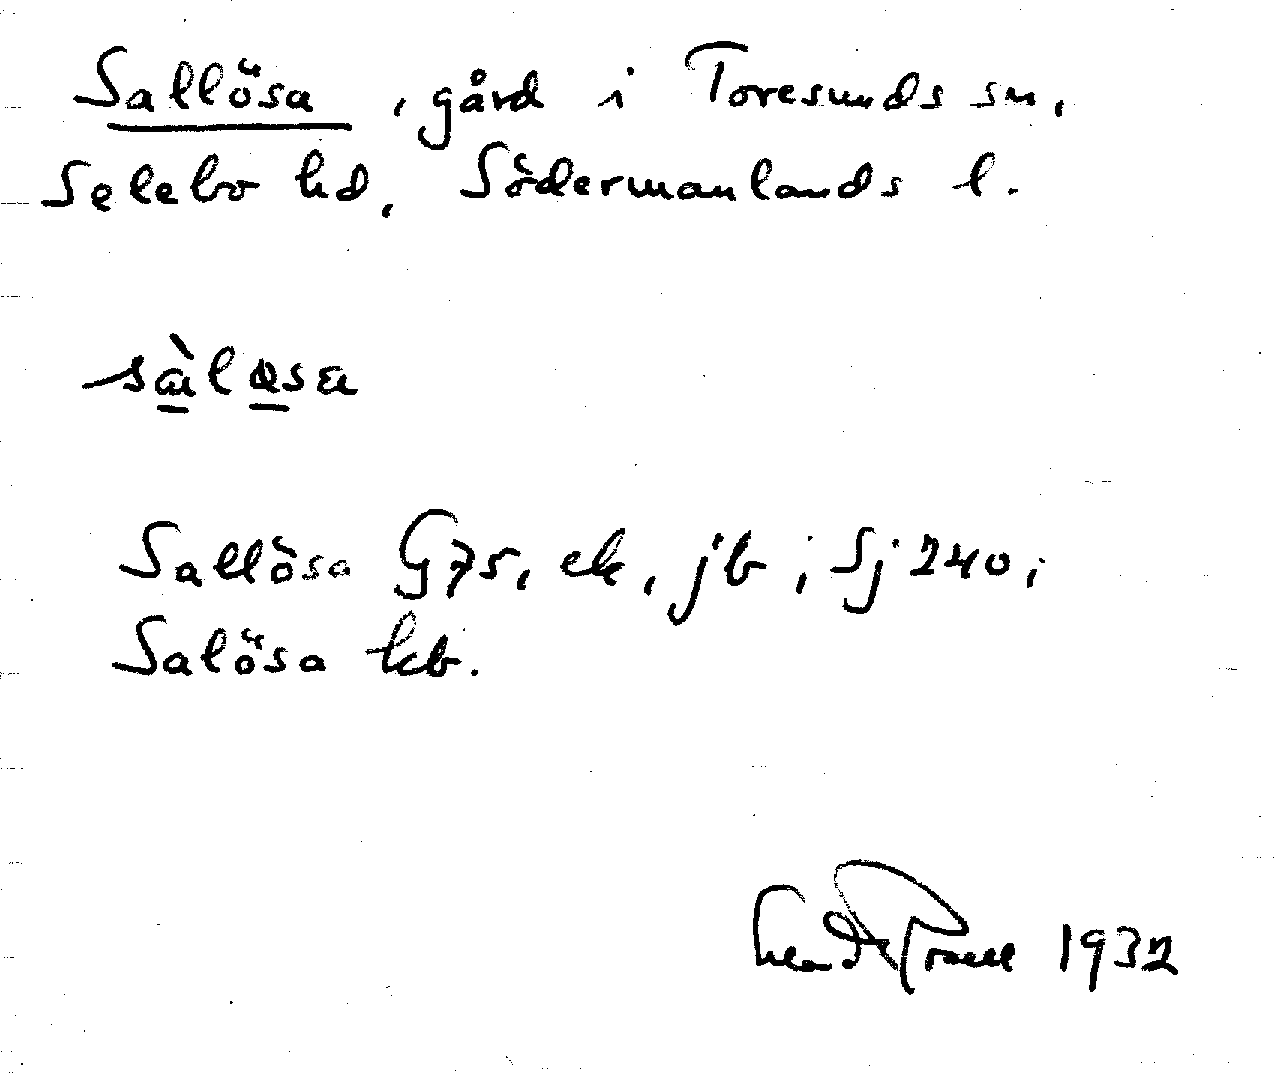 Sallösa, gård i Toresunds sn,
Selebo hd, Södermanlands l.
sàløsa
Sallösa G75, ek, jb; Sj 240;
Salösa kb.
1932